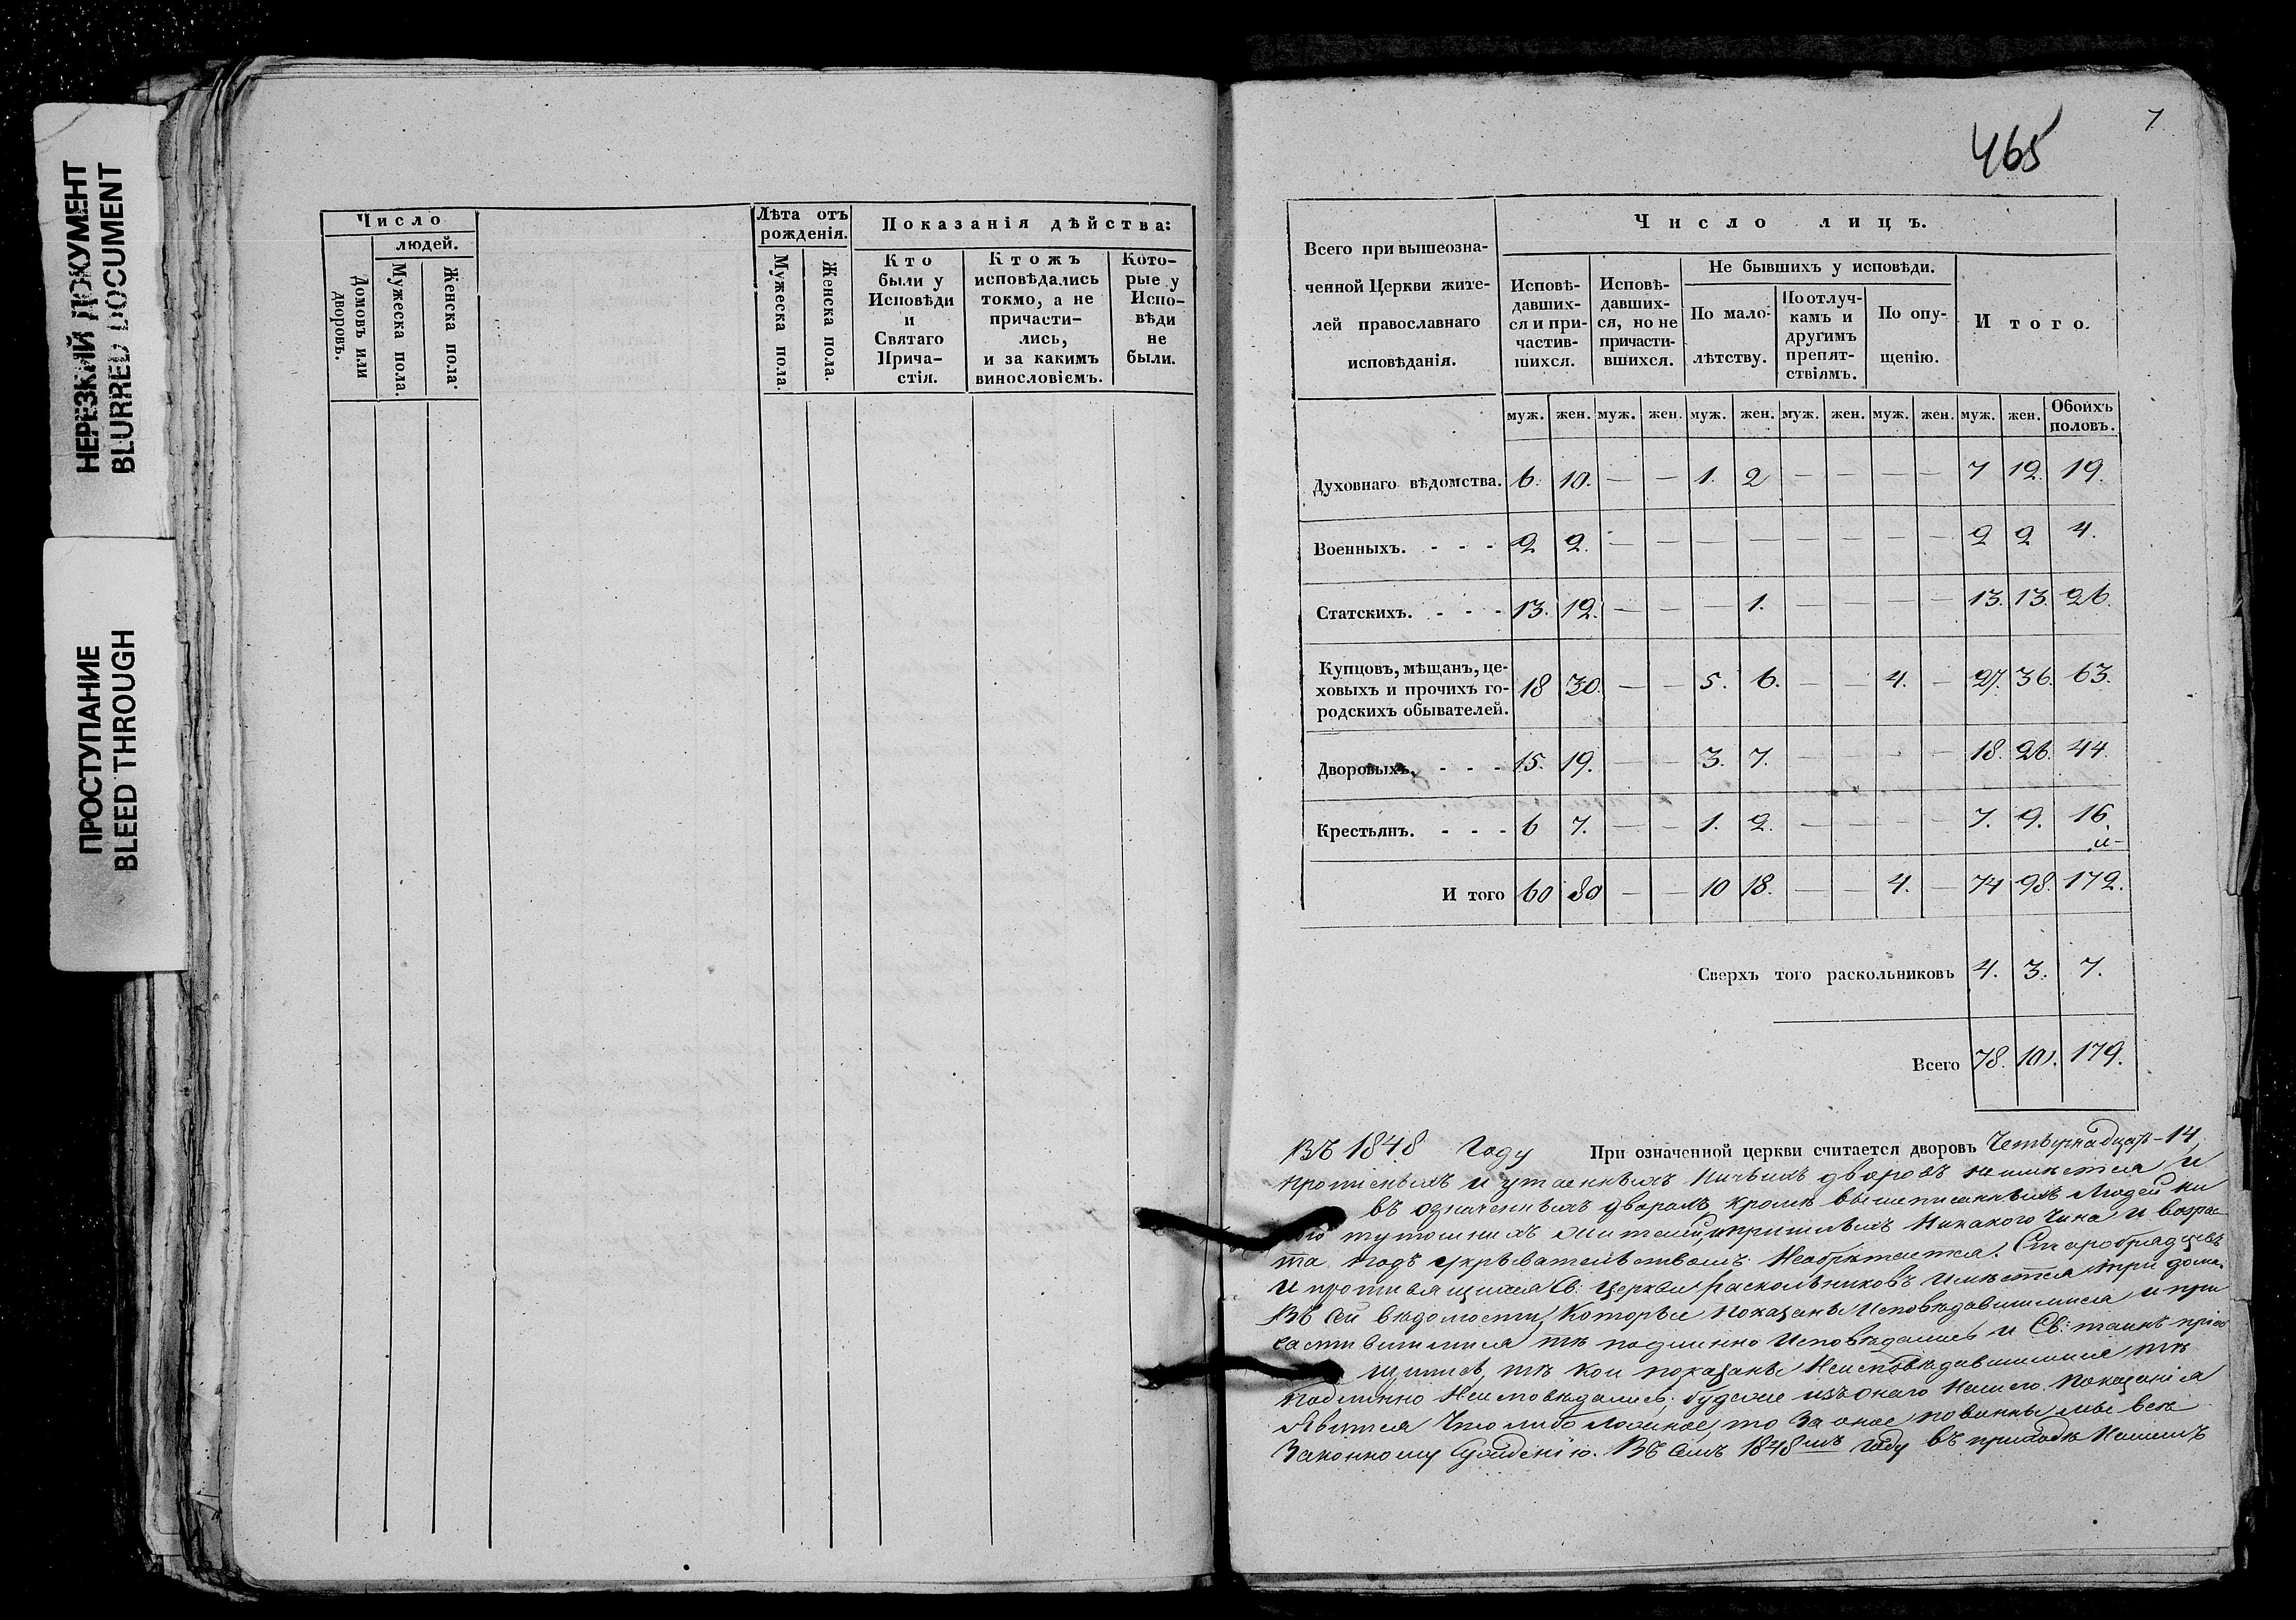 НЕРЕЗКИЙ ДОКУМЕНТ
BLURRED DOCUMENT
ПРОСТУПАНИЕ
BLEED THROUGH
Число
людей.
Домовъ или дворовъ.
Мужеска пола.
Женска пола.
Лѣта отъ рожденія.
Мужеска пола.
Женска пола.
Показанія дѣйства:
Кто
были у
Исповѣди
и
Святаго
Прича-
стія.
Ктожъ
исповѣдались
токмо, а не
причасти-
лись,
и за какимъ
винословіемъ.
Кото-
рые у
Испо-
вѣди
не
были.
7
465
Всего при вышеозна-
ченной Церкви жите-
лей православнаго
исповѣданія.
Число лицъ.
Исповѣ-
давших-
ся и при-
частив-
шихся.
Исповѣ-
давших-
ся, но не
причасти-
вшихся.
Не бывшихъ у исповѣди.
По мало-
лѣтству.
По отлуч-
камъ и
другимъ
препят-
ствіямъ.
По опу-
щенію.
Итого.
муж. жен. муж. жен. муж. жен. муж. жен. муж. жен. муж. жен. Обоихъ половъ.
Духовнаго вѣдомства. 6. 10. — — 1. 2 — — — — 7 12 19.
Военныхъ. - - - 2 2. — — — — — — — — 2 2 4.
Статскихъ. - - - 13. 12. — — — 1. — — — — 13. 13. 26.
Купцовъ, мѣщанъ, це-
ховыхъ и прочихъ го-
родскихъ обывателей. 18 30. — — 5. 6. — — 4. — 27. 36. 63.
Дворовыхъ. - - - 15. 19. — — 3. 7. — — — — 18. 26. 44.
Крестьянъ. - - - 6 7. — — 1. 2. — — — — 7. 9. 16.
И того 60 80 — — 10 18. — — 4. — 74 98. 172.
Сверхъ того раскольниковъ 4. 3. 7.
Всего 78. 101. 179.
Въ 1848 Году При означенной церкви считается дворовъ Четырнадцать - 14,
и утаенныхъ дворовъ неимѣется, и
въ означенныхъ дворахъ, кромѣ вышеписанныхъ людей ни
тутошнихъ жителей, никакого чина и возрас-
та подъ укрывательствомъ Необрѣтается. Старобрядцевъ
и противящихся Св: Церкви раскольниковъ имѣется три дома.
Въ сей вѣдомости, которые показаны Исповѣдавшимися и при
частившимися тѣ подлинно Исповѣдались и Св: таинъ пріоб
щились, тѣ кои показаны Неисповѣдавшимися тѣ
подлинно Неисповѣдались; будеже изъ онаго Нашего показанія
Явится что либо ложное, то за оное повинны мы всѣ
Законному Сужденію. Въ семъ 1848мъ году въ приходѣ Нашемъ